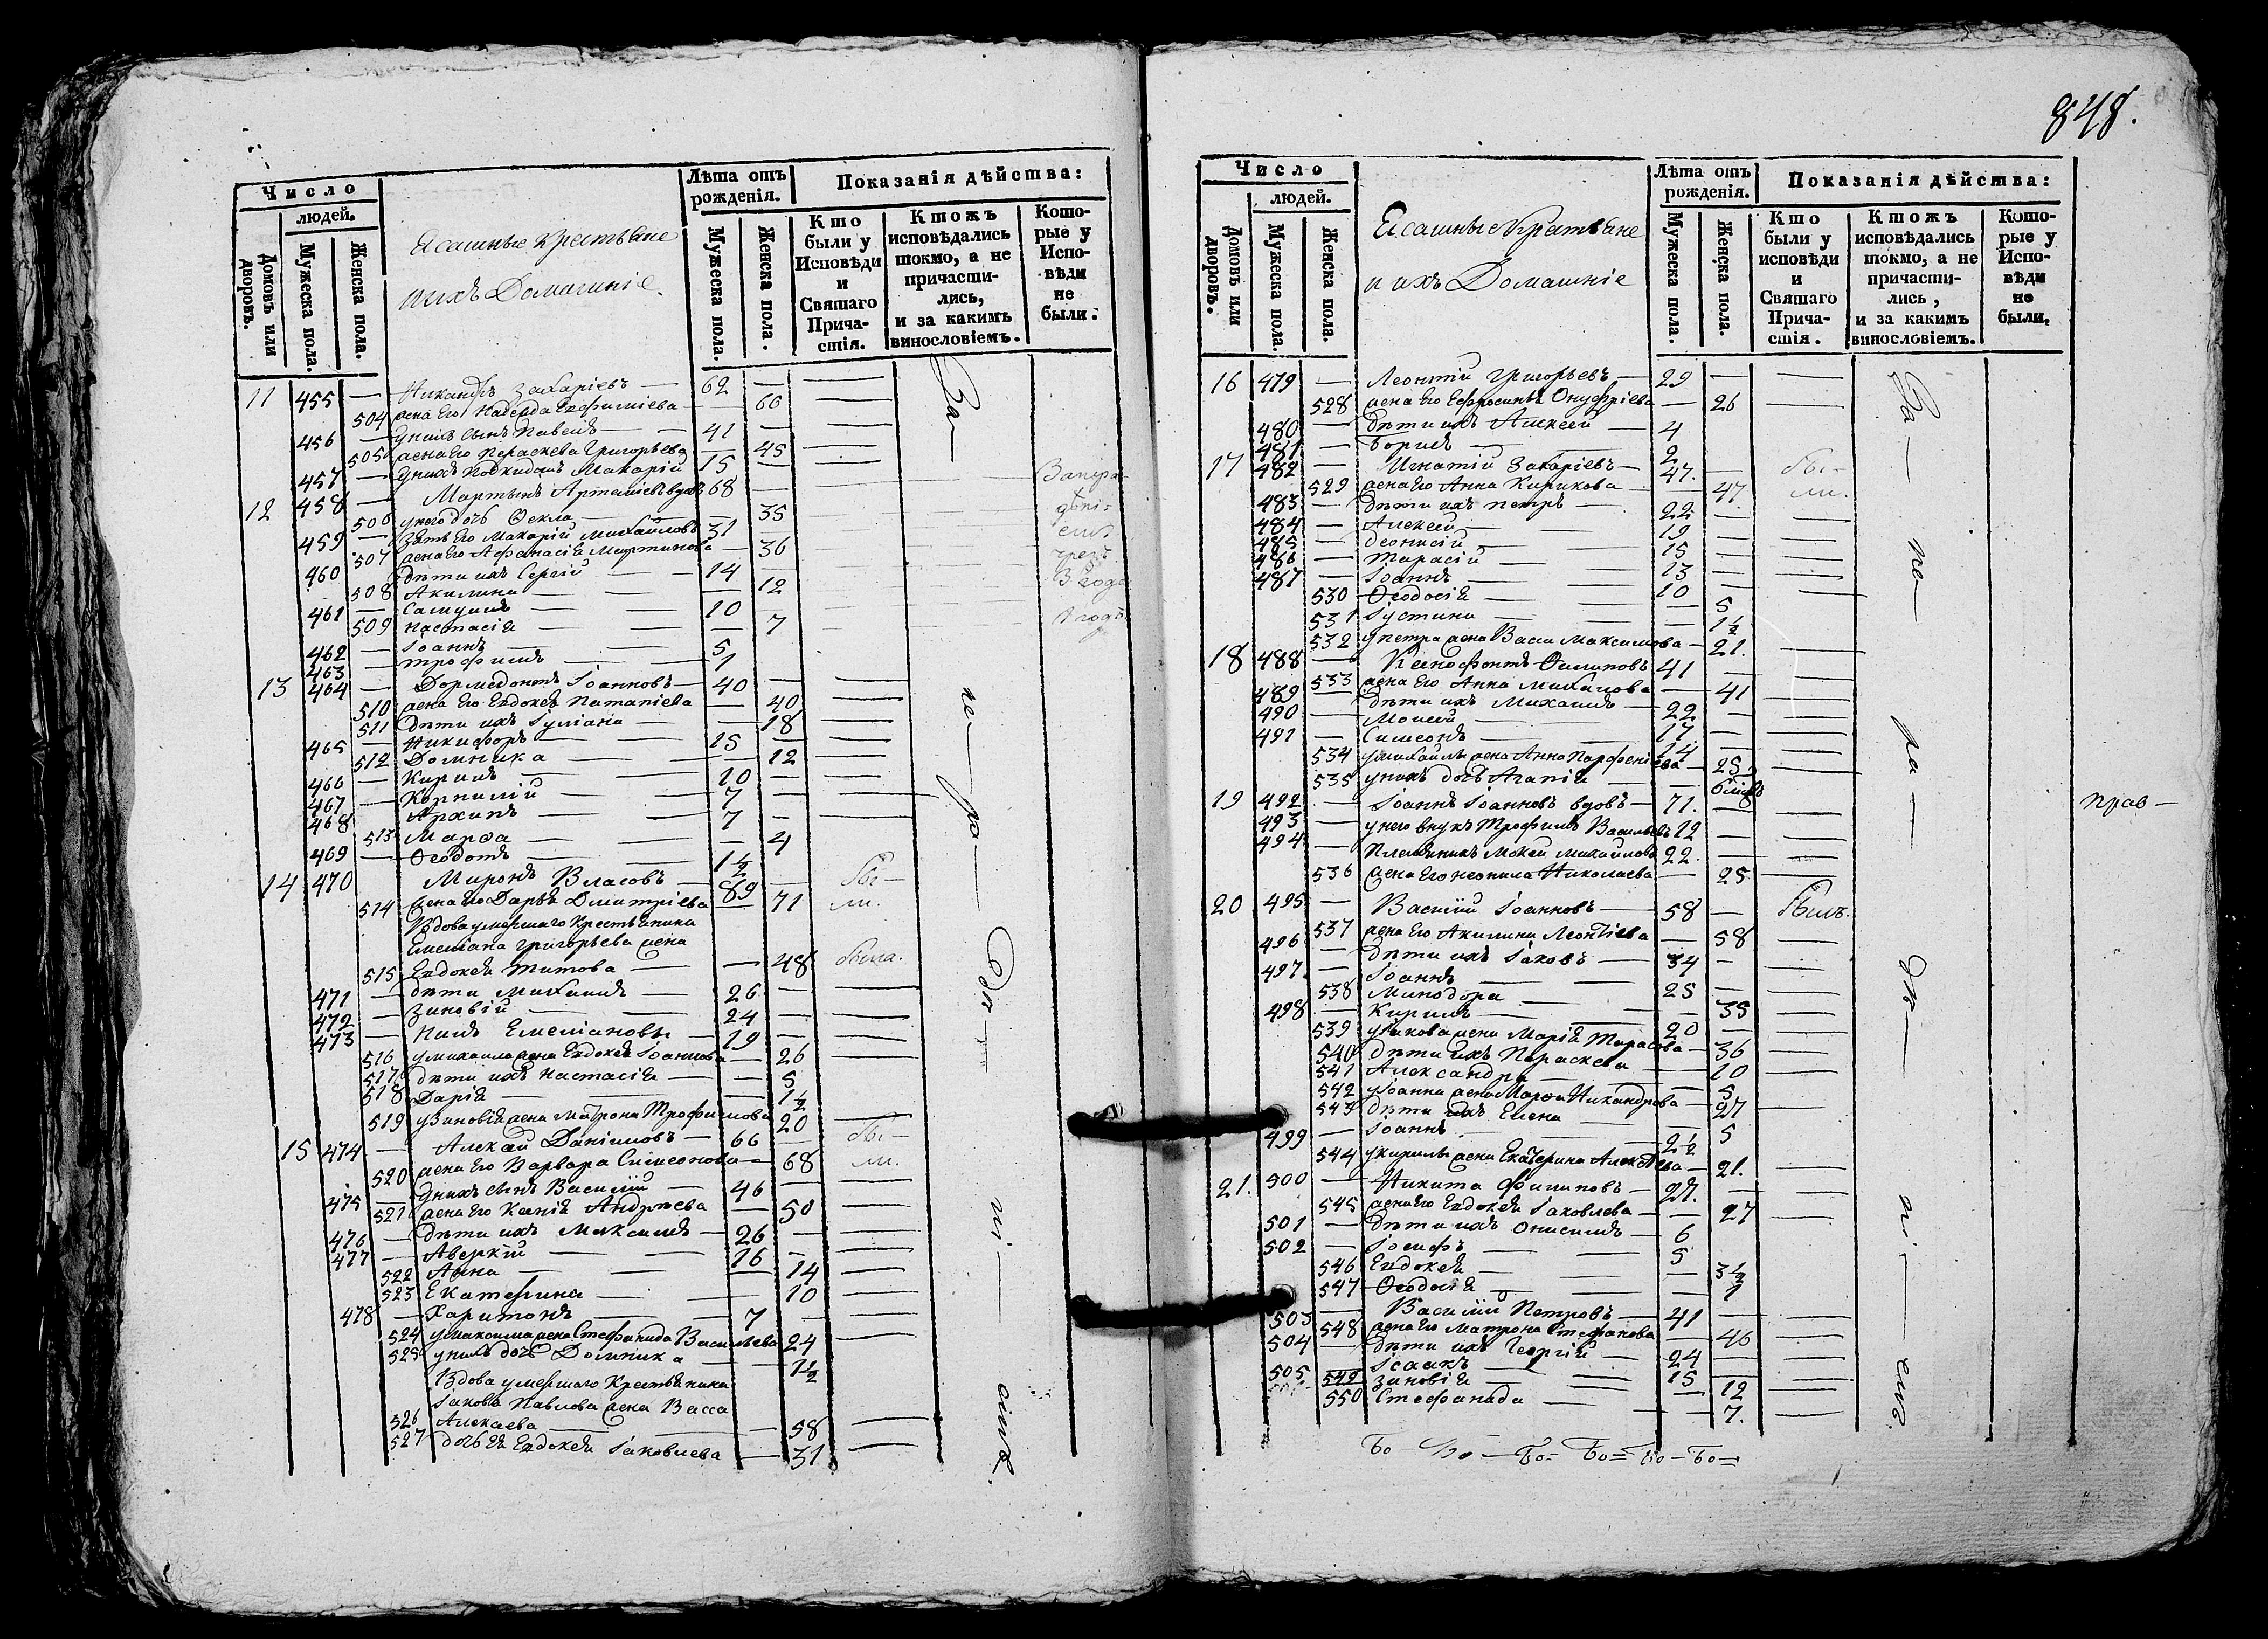 848.
Число
людей.
Домовъ или дворовъ.
Мужеска пола.
Женска пола.
Ясашные крестьяне
и ихъ Домашніе
Лѣта отъ рожденія.
Мужеска пола.
Женска пола.
Показанія дѣйства:
Кто были у Исповѣди и Святаго Причастія.
Ктожъ исповѣдались токмо, а не причастились, и за какимъ винословіемъ.
Которые у Исповѣди не были.
11 455 — Никандръ Захаріевъ — 62 —
504 жена Его Надежда — 60
456 — у нихъ сынъ Павелъ — 41 —
505 жена Его Пераскева Григорьева — 45
457 — у нихъ Макарій 15 —
12 458 — Мартынъ Артемиевъ вдовъ 68 —
506 у него дочь Ѳекла — 35
459 — Зять Его Макарій Михайловъ 31
507 жена Его Афанасія Мартинова — 36
460 дѣти ихъ Сергій — 14 —
508 Акилина — 12
461 — Самуилъ — 10
509 Настасія — 7
462 — Іоаннъ — 5
463 — Трофимъ — 1
13 464 — Дормедонтъ Іоанновъ — 40 —
510 жена Его Евдокея Патапіева — 40
511 дѣти ихъ Іуліана — 18
465 — Никифоръ — 15 —
512 Домника — 12
466 — Кирилъ — 10 —
467 — Корнилій — 7 —
468 Архипъ — 7 —
513 Марѳа — 4
469 — Ѳеодотъ — 1½
14 470 Миронъ Власовъ — 89 — бы-
514 жена Его Дарья Димитріева — 71 ли.
Вдова умершаго Крестьянина
Емеліана Григорьева жена
515 Евдокея Титова — 48 была.
471 — дѣти Михаилъ — 26 —
472 — Зиновій — 24 —
473 — Нилъ Емеліановы — 19 —
516 у михаила жена Евдокея Іоаннова — 26
517 дѣти ихъ Настасія — 5
518 Дарія — 1½
519 у Зиновія жена Матрона Трофимова 20
15 474 — Алексій Даниловъ — 66 — бы-
520 жена Его Варвара Симеонова — 68 ли.
475 — у нихъ сынъ Василій — 46 —
521 жена Его Ксенія Андрѣева — 50
476 — дѣти ихъ Максимъ — 26 —
477 — Аверкій — 16 —
522 Анна — 14
523 Екатерина — 10
478 — Харитонъ — 7 —
524 у максима жена Стефанида Васильева 24
525 у нихъ дочь Домника — 1½
Вдова умершаго Крестьянина
Іакова Павлова жена Васса
526 Алекаева — 58
527 дочь Ея Евдокея Іаковлева — 31
3 года
Число
людей.
Домовъ или дворовъ.
Мужеска пола.
Женска пола.
Ясашные Крестьяне
и ихъ Домашніе
Лѣта отъ рожденія.
Мужеска пола.
Женска пола.
Показанія дѣйства:
Кто были у исповѣди и Святаго Причастія.
Ктожъ исповѣдались токмо, а не причастились, и за какимъ винословіемъ.
Которые у Исповѣди не были.
16 479 — Леонтій Григорьевъ — 29 —
528 жена Его Ефросинья Онуфріева — 26
480 — дѣти ихъ Алексей — 4
481 — Борисъ — 2
17 482 — Игнатій Захаріевъ — 47. — бы-
529 жена Его Анна Кирикова — 47. ли.
483 — дѣти ихъ Петръ — 22 —
484 — Алексей — 19 —
485 — Деонисій — 15 —
486 — Тарасій — 13 —
487 — Іоаннъ — 10 —
530 Ѳеодосія — 5
531 Іустина — 1½
532 у петра жена Васса Максимова — 21.
18 488 — Ксенофонтъ Филиповъ 41 —
533 жена Его Анна Михаилова — 41
489 — дѣти ихъ Михаилъ — 22 —
490 — Моисей — 17 —
491 — Симеонъ — 14 —
534 у михаила жена Анна Парфеніева — 25
535 у нихъ дочь Агапія —
19 492 — Іоаннъ Іоанновъ вдовъ — 71. —
493 — у него внукъ Трофимъ Васильевъ 12 —
494 — Племянникъ Мокей Михайловъ 22. —
536 жена Его Неонила Николаева — 25
20 495 — Василій Іоанновъ — 58 — былъ.
537 жена Его Акилина Леонтіева — 58
496 — дѣти ихъ Іаковъ — 34 —
497 — Іоаннъ — 25 —
538 Минодора — 35
498 — Кирилъ — 20 —
539 у Іакова жена Марія Тарасова — 36
540 дѣти ихъ Параскева — 10
541 Александра — 5
542 у Іоанна жена Марѳа Никандрова — 27
543 дѣти ихъ Елена — 5
499 — Іоаннъ — 2½
544 у кирилы жена Екатерина Алексѣева — 21.
21. 500 — Никита Филиповъ — 27. —
545 жена Его Евдокея Іаковлева — 27
501 — дѣти ихъ Онисимъ — 6
502 — Іосифъ — 5
546 Евдокея — 3½
547 Ѳеодосія — 1
503 — Василій Петровъ — 41 —
548 жена Его Матрона Стефанова — 46
504 — дѣти ихъ Георгій — 24 —
505 Ісаакъ — 15 —
549 Зиновія — 12
550 Стефанида — 7.
прав —
Бо Бо — Бо= Бо= Бо — Бо=